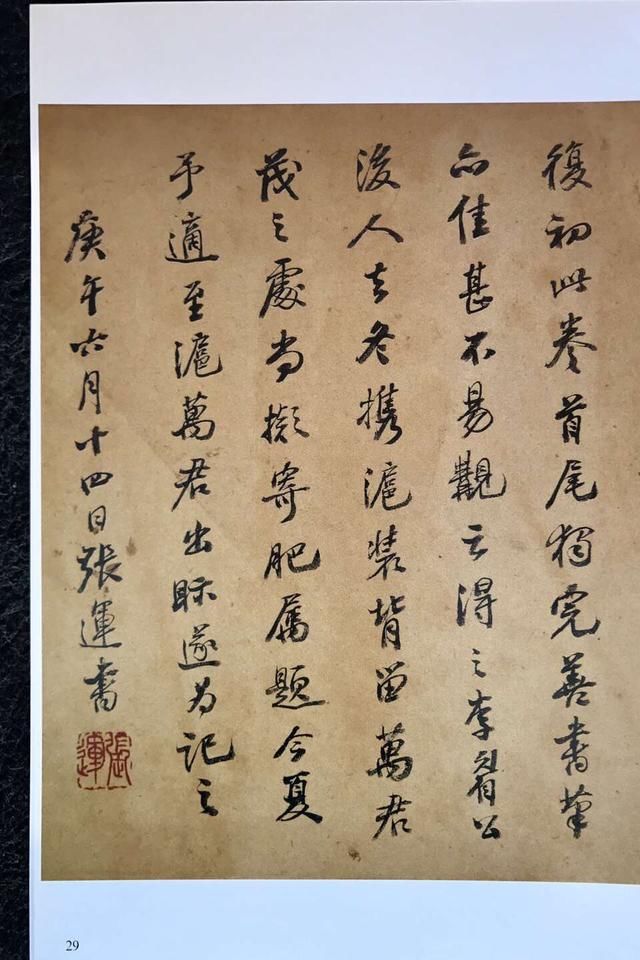 復初此卷首尾獨完善書筆
亦佳甚不易觀云得之李公
後人去冬携滬裝背留萬君
茂之處尚擬寄肥属題今夏
予適至滬萬君出眎遂为記之
庚午六月十四日張運書
張運
29